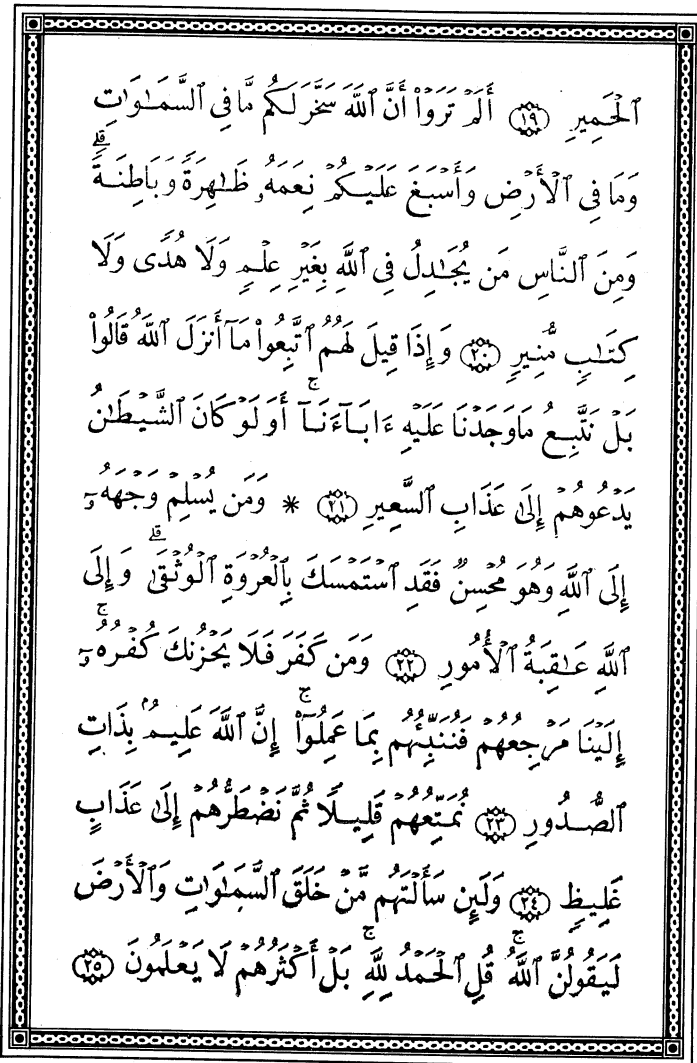 ٱلْحَمِيرِ ﴿١٩﴾ أَلَمْ تَرَوْا۟ أَنَّ ٱللَّهَ سَخَّرَ لَكُم مَّا فِى ٱلسَّمَـٰوَٰتِ
وَمَا فِى ٱلْأَرْضِ وَأَسْبَغَ عَلَيْكُمْ نِعَمَهُۥ ظَـٰهِرَةً وَبَاطِنَةً ۗ
وَمِنَ ٱلنَّاسِ مَن يُجَـٰدِلُ فِى ٱللَّهِ بِغَيْرِ عِلْمٍ وَلَا هُدًى وَلَا
كِتَـٰبٍ مُّنِيرٍ ﴿٢٠﴾ وَإِذَا قِيلَ لَهُمُ ٱتَّبِعُوا۟ مَآ أَنزَلَ ٱللَّهُ قَالُوا۟
بَلْ نَتَّبِعُ مَا وَجَدْنَا عَلَيْهِ ءَابَآءَنَآ ۚ أَوَلَوْ كَانَ ٱلشَّيْطَـٰنُ
يَدْعُوهُمْ إِلَىٰ عَذَابِ ٱلسَّعِيرِ ﴿٢١﴾ * وَمَن يُسْلِمْ وَجْهَهُۥٓ
إِلَى ٱللَّهِ وَهُوَ مُحْسِنٌ فَقَدِ ٱسْتَمْسَكَ بِٱلْعُرْوَةِ ٱلْوُثْقَىٰ ۗ وَإِلَى
ٱللَّهِ عَـٰقِبَةُ ٱلْأُمُورِ ﴿٢٢﴾ وَمَن كَفَرَ فَلَا يَحْزُنكَ كُفْرُهُۥٓ ۚ
إِلَيْنَا مَرْجِعُهُمْ فَنُنَبِّئُهُم بِمَا عَمِلُوٓا۟ ۚ إِنَّ ٱللَّهَ عَلِيمٌۢ بِذَاتِ
ٱلصُّدُورِ ﴿٢٣﴾ نُمَتِّعُهُمْ قَلِيلًا ثُمَّ نَضْطَرُّهُمْ إِلَىٰ عَذَابٍ
غَلِيظٍ ﴿٢٤﴾ وَلَئِن سَأَلْتَهُم مَّنْ خَلَقَ ٱلسَّمَـٰوَٰتِ وَٱلْأَرْضَ
لَيَقُولُنَّ ٱللَّهُ ۚ قُلِ ٱلْحَمْدُ لِلَّهِ ۚ بَلْ أَكْثَرُهُمْ لَا يَعْلَمُونَ ﴿٢٥﴾